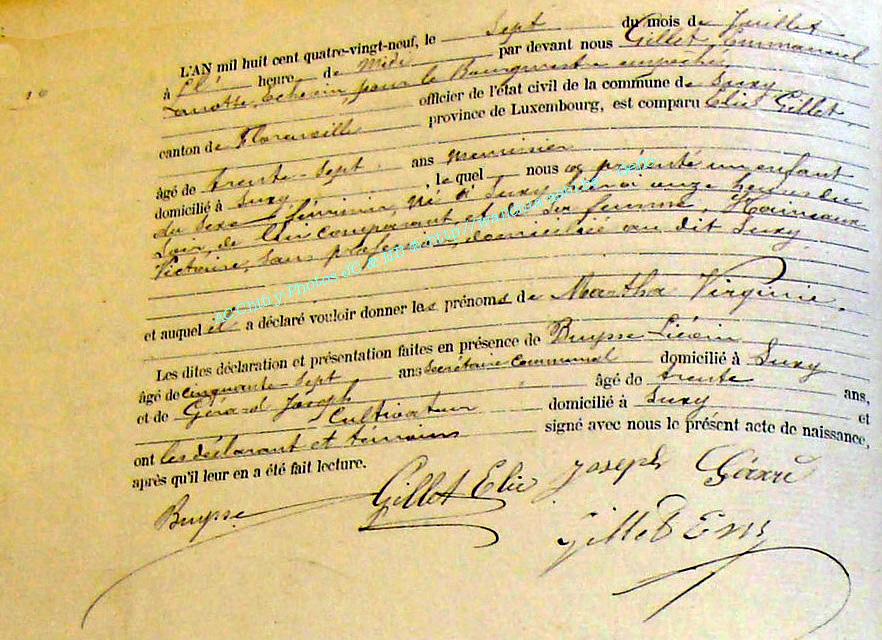 L'AN mil huit cent quatre-vingt-neuf, le Sept du mois de Juillet
à heure de Midi par devant nous Gillet Emmanuel
Echevin, pour le Bourgmestre empêché,
officier de l'état civil de la commune de Suxy
canton de Florenville province de Luxembourg, est comparu Elie Gillet,
âgé de trente-Sept ans menuisier
domicilié à Suxy, le quel nous a présenté un enfant
du Sexe féminin, né à Suxy, onze heures du
Soir, de lui comparant et de Sa femme,
Victoire, Sans profession, domiciliée au dit Suxy
et auquel il a déclaré vouloir donner les prénoms de Martha Virginie.
Les dites déclaration et présentation faites en présence de Buysse
âgé de cinquante-Sept ans Secrétaire Communal domicilié à Suxy
et de Gérard Joseph âgé de trente ans,
Cultivateur domicilié à Suxy et
ont les déclarant et témoins signé avec nous le présent acte de naissance,
après qu'il leur en a été fait lecture.
Buysse Gillet Elie Joseph Gérard
Gillet Em